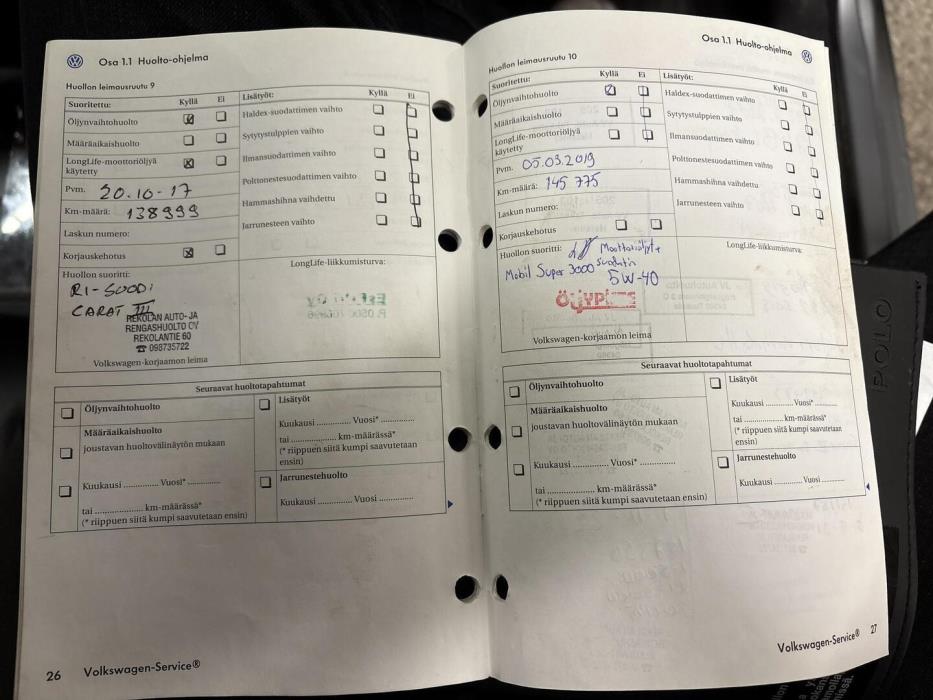 Osa 1.1 Huolto-ohjelma
Huollon leimausruutu 9
Suoritettu: Kyllä Ei
Öljynvaihtohuolto
Määräaikaishuolto
LongLife-moottoriöljyä
käytetty
Pvm. 20.10-17
Km-määrä: 138999
Laskun numero:
Korjauskehotus
Huollon suoritti:
RI-SOODI
CARAT III
REKOLAN AUTO- JA
RENGASHUOLTO OY
REKOLANTIE 60
☎ 098735722
Volkswagen-korjaamon leima
Lisätyöt: Ei
Haldex-suodattimen vaihto
Sytytystulppien vaihto
Ilmansuodattimen vaihto
Polttonestesuodattimen vaihto
Hammashihna vaihdettu
Jarrunesteen vaihto
LongLife-liikkumisturva:
Seuraavat huoltotapahtumat
Öljynvaihtohuolto
Määräaikaishuolto
joustavan huoltovälinäytön mukaan
Kuukausi .............. Vuosi* .............
tai .................... km-määrässä*
(* riippuen siitä kumpi saavutetaan ensin)
Lisätyöt
Kuukausi ............. Vuosi* .............
tai ................. km-määrässä*
(* riippuen siitä kumpi saavutetaan
ensin)
Jarrunestehuolto
Kuukausi ............. Vuosi .............
26 Volkswagen-Service®
Osa 1.1 Huolto-ohjelma
Huollon leimausruutu 10
Suoritettu: Kyllä Ei
Öljynvaihtohuolto
Määräaikaishuolto
LongLife-moottoriöljyä
käytetty
Pvm. 05.03.2019
Km-määrä: 145 775
Laskun numero:
Korjauskehotus
Huollon suoritti: Moottoriöljy+
suodatin
Mobil Super 3000 5W-40
Volkswagen-korjaamon leima
Lisätyöt: Kyllä Ei
Haldex-suodattimen vaihto
Sytytystulppien vaihto
Ilmansuodattimen vaihto
Polttonestesuodattimen vaihto
Hammashihna vaihdettu
Jarrunesteen vaihto
LongLife-liikkumisturva:
Seuraavat huoltotapahtumat
Öljynvaihtohuolto
Määräaikaishuolto
joustavan huoltovälinäytön mukaan
Kuukausi .............. Vuosi* .............
tai .................... km-määrässä*
(* riippuen siitä kumpi saavutetaan ensin)
Lisätyöt
Kuukausi ............. Vuosi* .............
tai ................. km-määrässä*
(* riippuen siitä kumpi saavutetaan
ensin)
Jarrunestehuolto
Kuukausi ............. Vuosi .............
Volkswagen-Service® 27
POLO